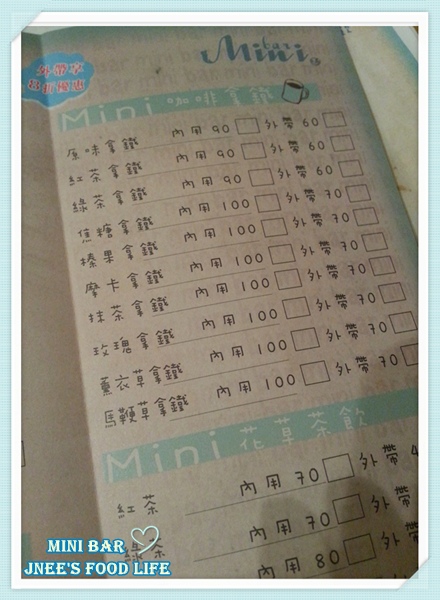 Mini bar
外帶享
8折優惠
Mini 咖啡拿鐵
原味拿鐵 內用 90 外帶 60
紅茶拿鐵 內用 90 外帶 60
綠茶拿鐵 內用 90 外帶 60
焦糖拿鐵 內用 100 外帶 70
榛果拿鐵 內用 100 外帶 70
摩卡拿鐵 內用 100 外帶 70
抹茶拿鐵 內用 100 外帶 70
玫瑰拿鐵 內用 100 外帶 70
薰衣草拿鐵 內用 100 外帶 70
馬鞭草拿鐵 內用 100 外帶 70
Mini 花草茶飲
紅茶 內用 70 外帶
綠茶 內用 70 外帶
內用 80
MINI BAR
JNEE'S FOOD LIFE